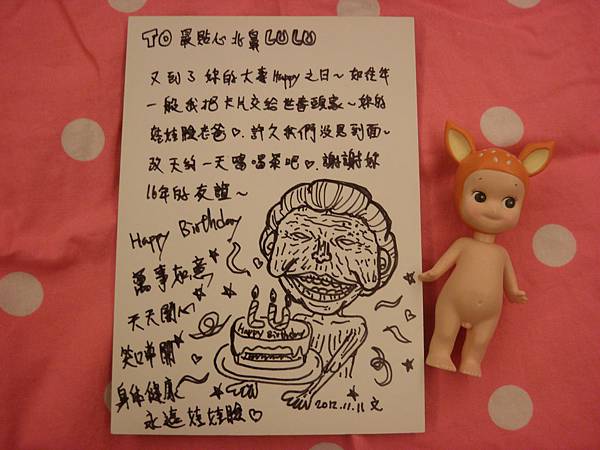 TO 最貼心北鼻 LULU
又到了妳的大壽Happy之日~如往年
一般我把卡片交給世
~妳的
娃娃臉老爸♡.許久我們沒見到面~
改天約一天喝喝茶吧♡.謝謝妳
16年的友誼~
Happy Birthday
萬事如意
天天開心
笑口常開
身体健康
永遠娃娃臉♡
Happy Birthday
2012.11.11 文